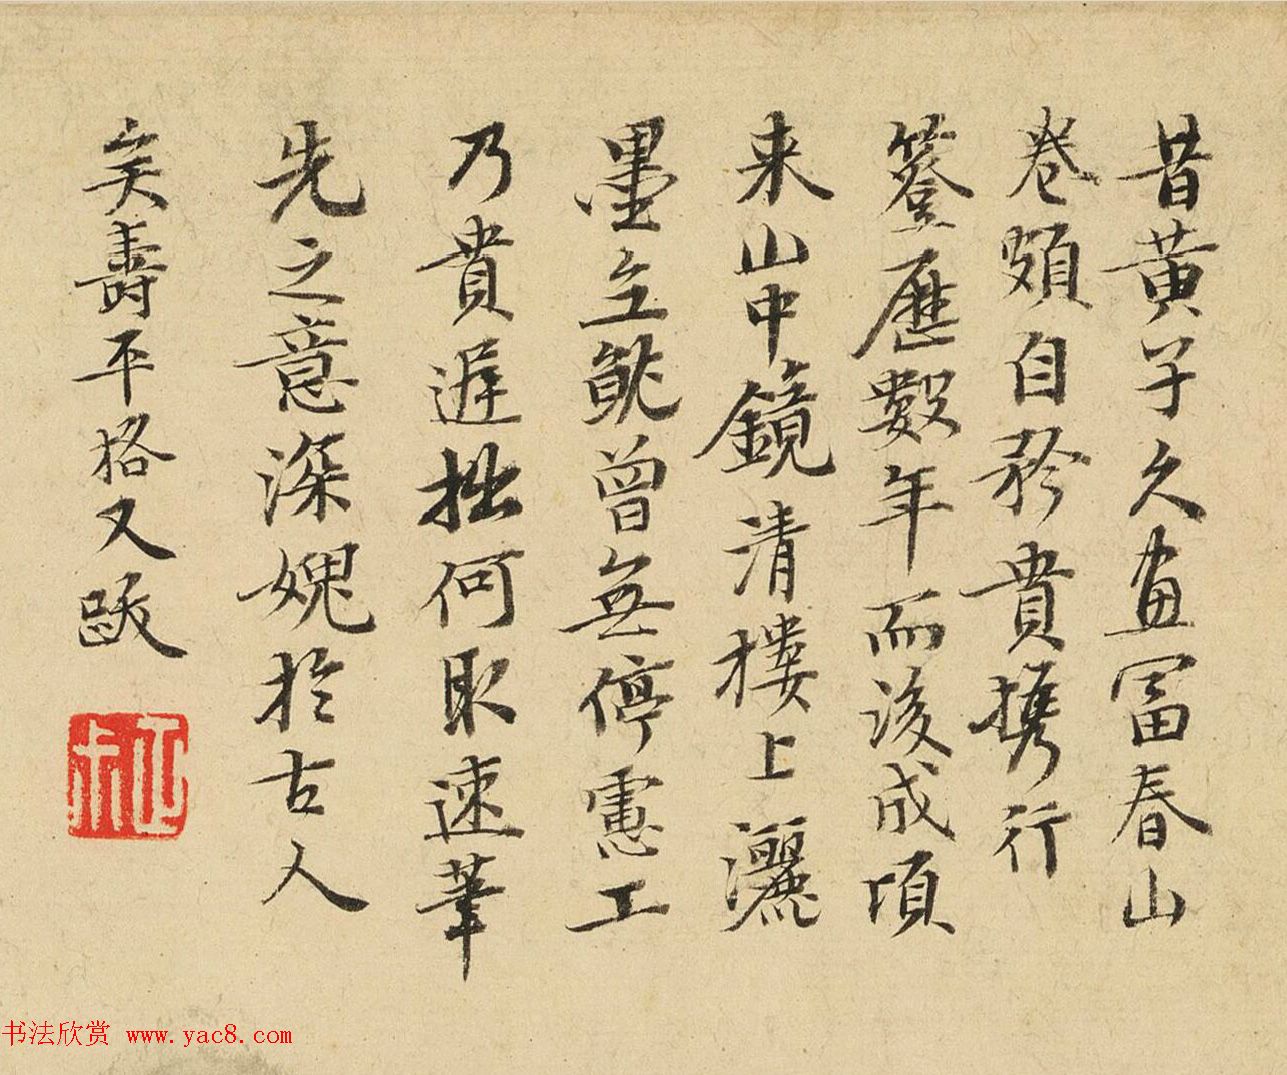 昔黄子久畫富春山
卷頗自矜貴携行
簦歷數年而後成頃
来山中鏡清樓上灑
墨立就曾無停慮工
乃貴遲拙何取速筆
先之意深媿於古人
矣壽平格又跋
书法欣赏 www.yac8.com